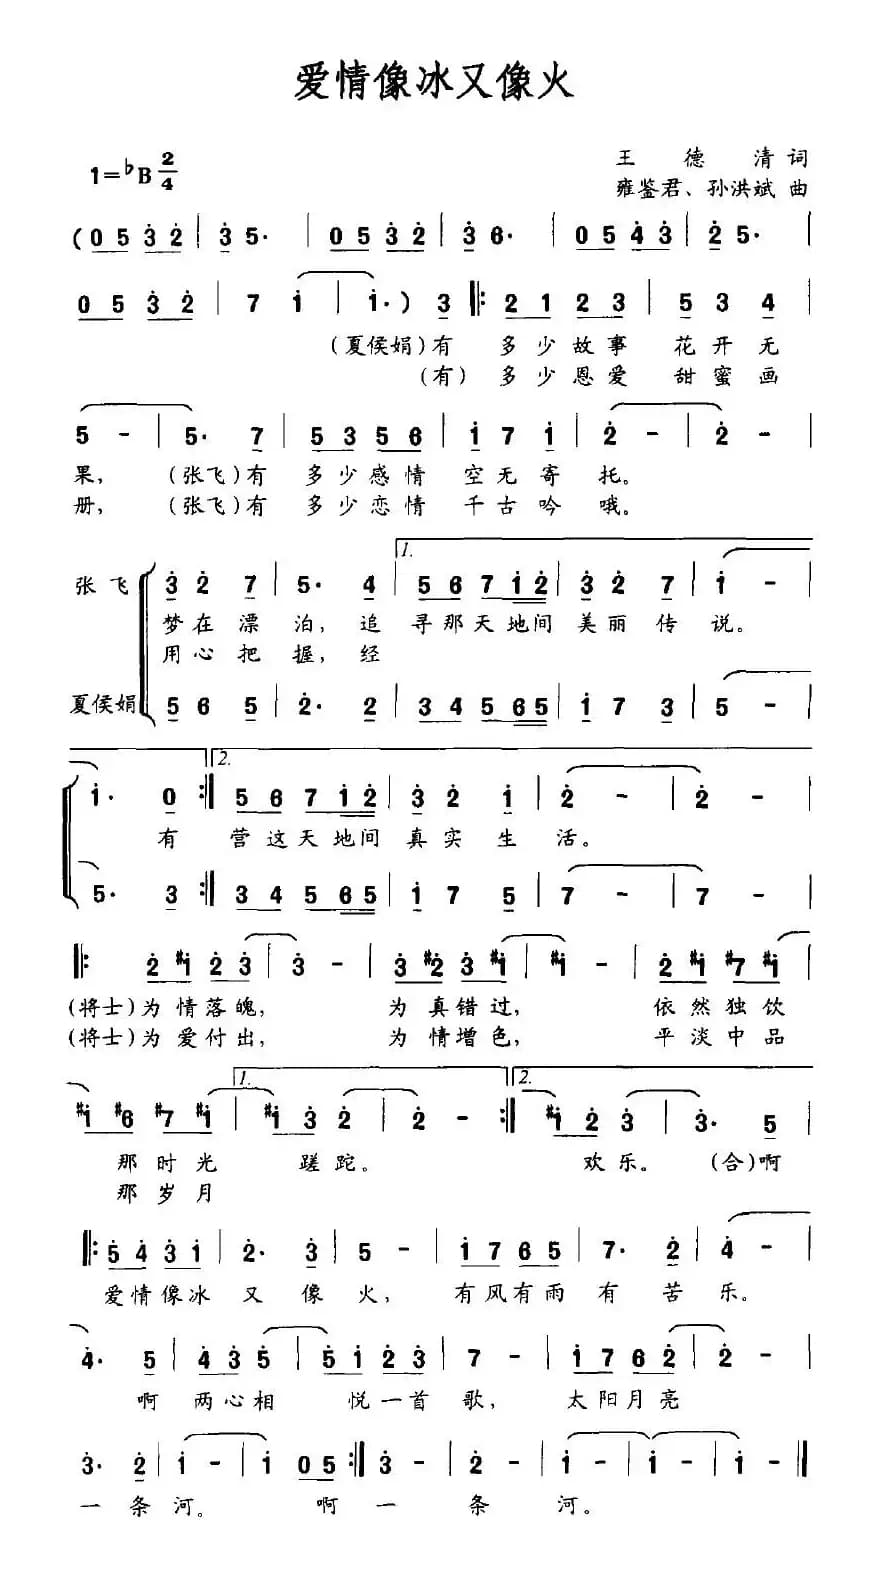 爱情像冰又像火
1=♭B 2/4
王德清词
雍鉴君、孙洪斌曲
(0 5 3 2 | 3 5· | 0 5 3 2 | 3 6· | 0 5 4 3 | 2 5· |
0 5 3 2 | 7 i | i·) 3 ‖: 2 1 2 3 | 5 3 4
(夏侯娟)有 多少故事 花开无
(有) 多少恩爱 甜蜜画
5 - | 5· 7 | 5 3 5 6 | i 7 i | 2 - | 2 -
果, (张飞)有 多少感情 空无寄托。
册, (张飞)有 多少恋情 千古吟哦。
1.
张飞 3 2 7 | 5· 4 | 5 6 7 i 2 | 3 2 7 | i -
梦在漂泊, 追寻那天地间美丽传说。
用心把握, 经
夏侯娟 5 6 5 | 2· 2 | 3 4 5 6 5 | i 7 3 | 5 -
2.
i· 0 :‖ 5 6 7 i 2 | 3 2 i | 2 - | 2 -
有 营这天地间真实生活。
5· 3 :‖ 3 4 5 6 5 | i 7 5 | 7 - | 7 -
‖: 2 #i 2 3 | 3 - | 3 #2 3 #i | #i - | 2 #i #7 #i
(将士)为情落魄, 为真错过, 依然独饮
(将士)为爱付出, 为情增色, 平淡中品
1. 2.
#i #6 #7 #i | #i 3 2 | 2 - :‖ #i 2 3 | 3· 5
那时光 蹉跎。 欢乐。 (合)啊
那岁月
‖: 5 4 3 i | 2· 3 | 5 - | i 7 6 5 | 7· 2 | 4 -
爱情像冰又像火, 有风有雨有苦乐。
4· 5 | 4 3 5 | 5 i 2 3 | 7 - | i 7 6 2 | 2 -
啊 两心相 悦一首歌, 太阳月亮
3· 2 | i - | i 0 5 :‖ 3 - | 2 - | i - | i - | i - ‖
一条河。 啊一条河。